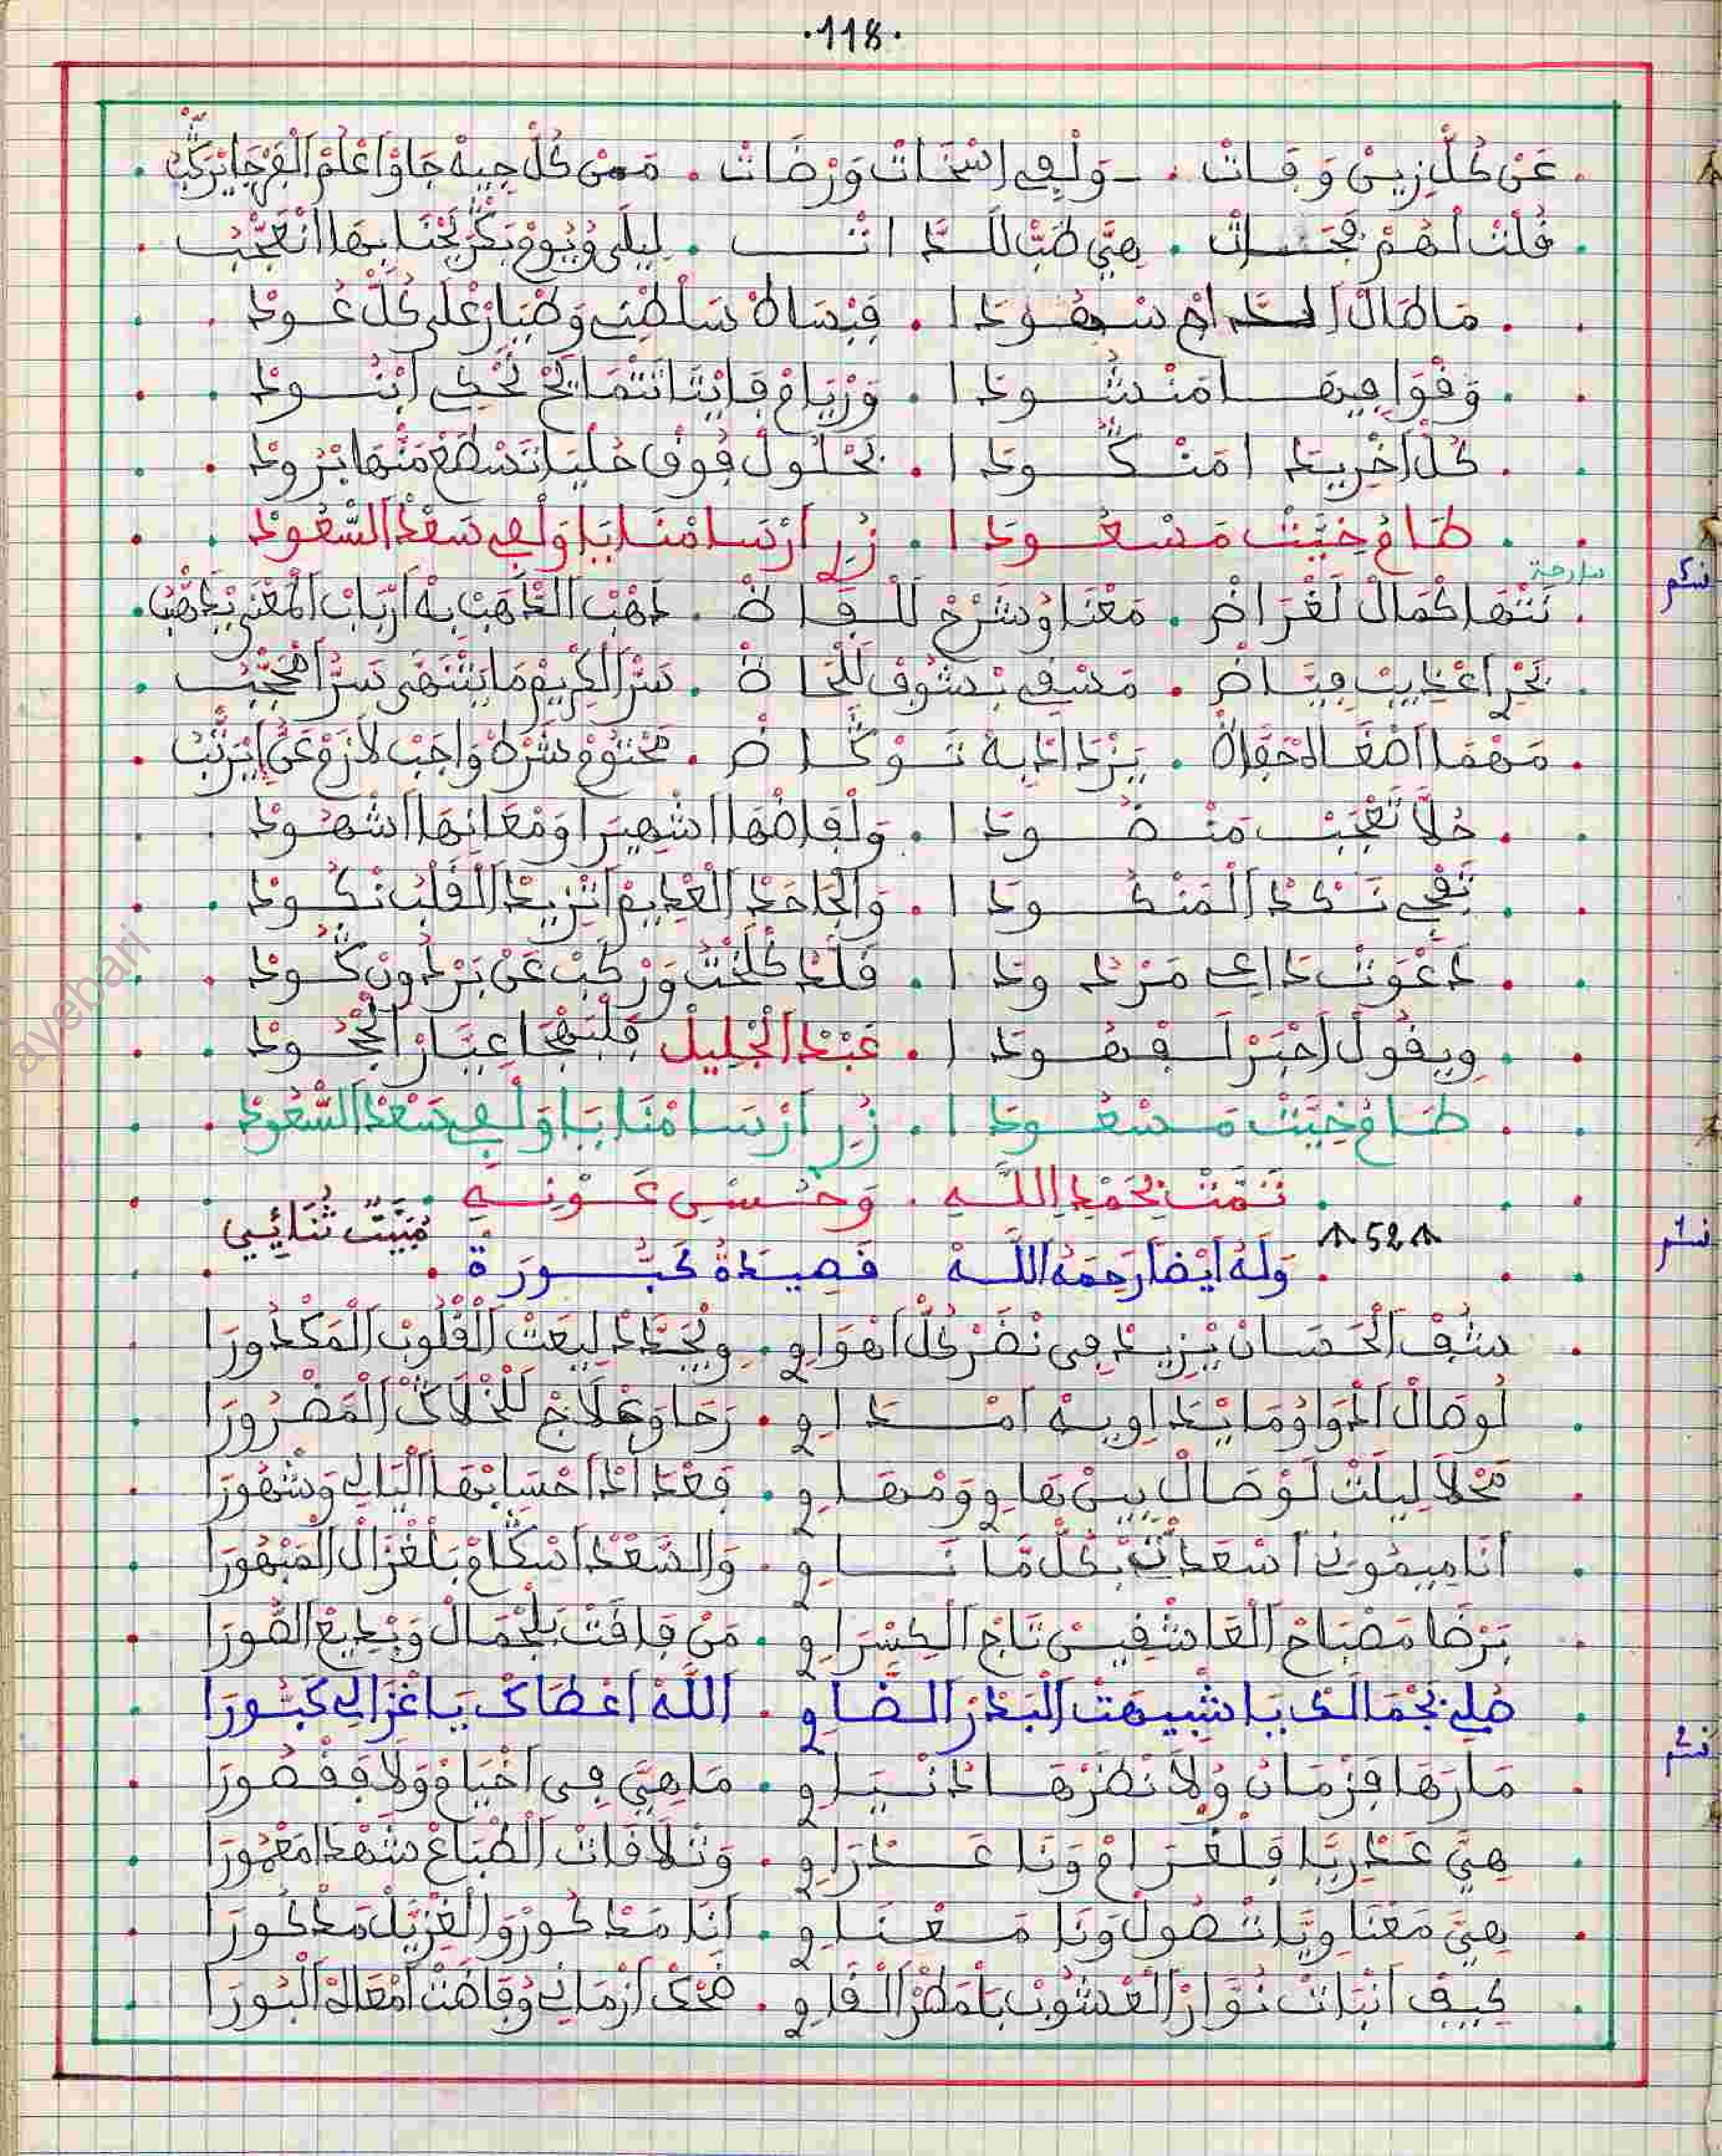 118
عَنْ كُلّ زِينْ وَفَاتْ . وَلْفِي اسْخَاتْ وَرْضَاتْ . مَنْ كُلّ جِيهْ جَاوْ اعْلَمْ الْفَرْجَا يَرَكَّبْ
قُلْتْ لْهُمْ . هِيَّ طَبّ لَلذَّاتْ . لِيلَى وْيُومْ بَكَّرْ بِهَا انْعَجَّبْ
مَا طَالْ الدَّاحْ سْهُودَا . فَبْسَاطْ سَلْطَنِي وَطْبَارْ عْلَى كُلّ عُودْ
وَقْوَافِيهَا مَنْشُودَا . وَرْيَامْ فَايْتَا تَتْمَايَحْ تَحْكِي ابْنُودْ
كُلّ اخْرِيدَا مَنْكُودَا . بَحْلُولْ فُوقْ حُلْيَا تَسْطَعْ مَنْهَا بْرُودْ
طَامُ خِيَّتْ مَسْعُودَا . زُرْ ارْسَامْنَا يَا وَلْفِي سَعْدْ السّْعُودْ
سارحة
نَتْهَا كْمَالْ لَغْرَاضْ . مَعْنَا وْشَرْحْ لَلْفَاظْ . ذَهْبْ الذَّهَبْ بِهْ ارْبَابْ الْمَعْنَى يَذْهَبْ
بَحْرْ اعْذِيبْ فِيَّاضْ . مَسْقِي بْشُوفْ لَلْحَاظْ . سَرّ الْكْرِيمْ مَا يَنْتْهَى سَرّ امْحَجَّبْ
مَهْمَا اصْغَا لَحْفَاظْ . يَزْدَادْ بِهْ تَوْكَاضْ . مَحْتُومْ شَرْطْ وَاجَبْ لَازَمْ عَنِّي يَرَتَّبْ
حُلَّا تَعْجَبْ مَنْضُودَا . وَلْفَاضْهَا اشْهِيرَا وَمْعَانِيهَا اشْهُودْ
تَفْجِي نَكْدْ الْمَنْكُودَا . وَالْجَاحَدْ الْعْدِيمْ اتْزِيدْ الْقَلْبْ نْكُودْ
دَعْوَتْ دَاعِي مَرْدُودَا . وَرْكَبْ عَنْ بَرْدُونْ كَّودْ
وِيقُولْ احْبَرْ لَفْهُودَا . عَبْدْ الْجْلِيلْ قَلْبْهَا عِيَّارْ الْجْحُودْ
طَامُ خِيَّتْ مَسْعُودَا . زُرْ ارْسَامْنَا يَا وَلْفِي سَعْدْ السّْعُودْ
تَمَّتْ بِحَمْدِ اللَّهِ . وَحُسْنِ عَوْنِهِ
52 مْبَيَّتْ ثُنَائِي
وَلَهُ أَيْضًا رَحِمَهُ اللَّهْ قَصِيدَةُ كَبُّورَة
شُوفْ الْحَسَانْ يْزِيدْ فِي نْضَرْ كُلّ اهْوَاوِي . وِيْجَدَّدْ لِيعَتْ الْقْلُوبْ الْمَكْدُورَا
لُوصَالْ ادْوَا وُمَا يْدَاوِي بِهْ امْدَاوِي . رَحَا وَعْلَاجْ لَلْخْلَاكْ الْمَضْرُورَا
مَحْلَا لِيلَتْ لَوْصَالْ بِينْ بْهَاوِي وَمْهَاوِي . فَعْدَادْ احْسَابْهَا الْيَالِي وَشْهُورَا
انَا مِيمُونِي اسْعَدْنِي بْكُلّ مَّا نَاوِي . وَالسَّعْدْ اسْكَامْ بَلْغْزَالْ الْمَبْهُورَا
بَرْضَا مَصْبَاحْ الْعَاشْقِينْ تَاجْ الْكِسْرَاوِي . مَنْ فَاقَتْ بَلْجْمَالْ وَبْدِيعْ الصُّورَا
صُلِي بَجْمَالَكْ يَا شْبِيهَتْ الْبَدْرْ الضَّاوِي . اللَّهْ اعْطَاكْ يَا غْزَالِي كَبُّورَا
مَارَهَا فَزْمَانْ وُلَا نَظَرْهَا دَنْيَاوِي . مَاهِيَّ فِي اخْيَامْ وَلَا فَقْصُورَا
هِيَّ عَدْرِيَّا فَلْغْرَامْ وَنَا عَدْرَاوِي . وَتْلَافَاتْ الطّْبَاعْ شَهْدَا مَعْمُورَا
هِيَّ مَعْنَاوِيَّا تْصُولْ وَنَا مَعْنَاوِي . انَا مَدْكُورْ وَالْغْزِيَّلْ مَدْكُورَا
كِيفْ انْبَاتْ نُوَّارْ الْعْشُوبْ بَامْطَرْ الْفَاوِي . ضْحَكْ ازْمَانِي وْفَاضَتْ امْعَاكْ الْبُورَا